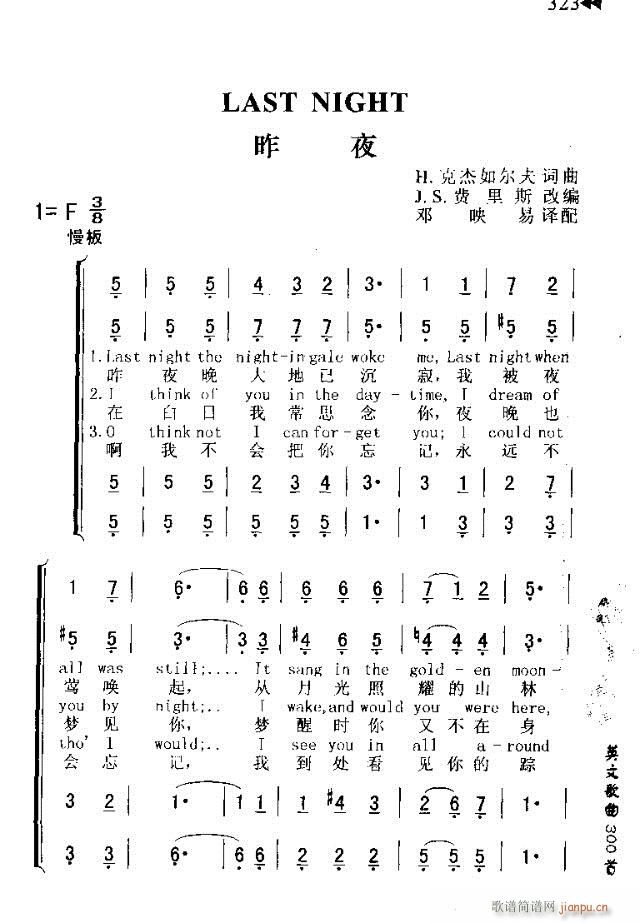 323
LAST NIGHT
昨 夜
H. 克杰如尔夫 词曲
J. S. 费里斯 改编
邓映易 译配
1= F 3/8
慢板
5 | 5 5 | 4 3 2 | 3· | 1 1 | 7 2 |
5 | 5 5 | 7 7 7 | 5· | 5 5 | #5 5 |
1. Last night the night-in gale woke me, Last night when
昨 夜 晚 大 地 已 沉 寂, 我 被 夜
2. I think of you in the day-time, I dream of
在 白 日 我 常 思 念 你, 夜 晚 也
3. O think not I can for-get you; I could not
啊 我 不 会 把 你 忘 记, 永 远 不
5 | 5 5 | 2 3 4 | 3· | 3 1 | 2 7 |
5 | 5 5 | 5 5 5 | 1· | 1 3 | 3 3 |
1 7 | 6· | 6· 6 6 | 6 6 6 | 6· | 7 1 2 | 5· |
#5 5 | 3· | 3· 3 3 | #4 6 5 | 3· | ♮4 4 4 | 5· |
all was still;.... It sang in the gold-en moon-
莺 唤 起, 从 月 光 照 耀 的 山 林
you by night;.. I wake, and would you were here,
梦 见 你, 梦 醒 时 你 又 不 在 身
tho' I would;.. I see you in all a-round
会 忘 记, 我 到 处 看 见 你 的 踪
3 2 | 1· | 1· 1 1 | 1 #4 3 | 1· | 2 6 7 | 1· |
3 3 | 6· | 6· 6 6 | 6 6 6 | 6· | 5 5 5 | 1· |
英文歌曲300首
歌谱简谱网
jianpu.cn